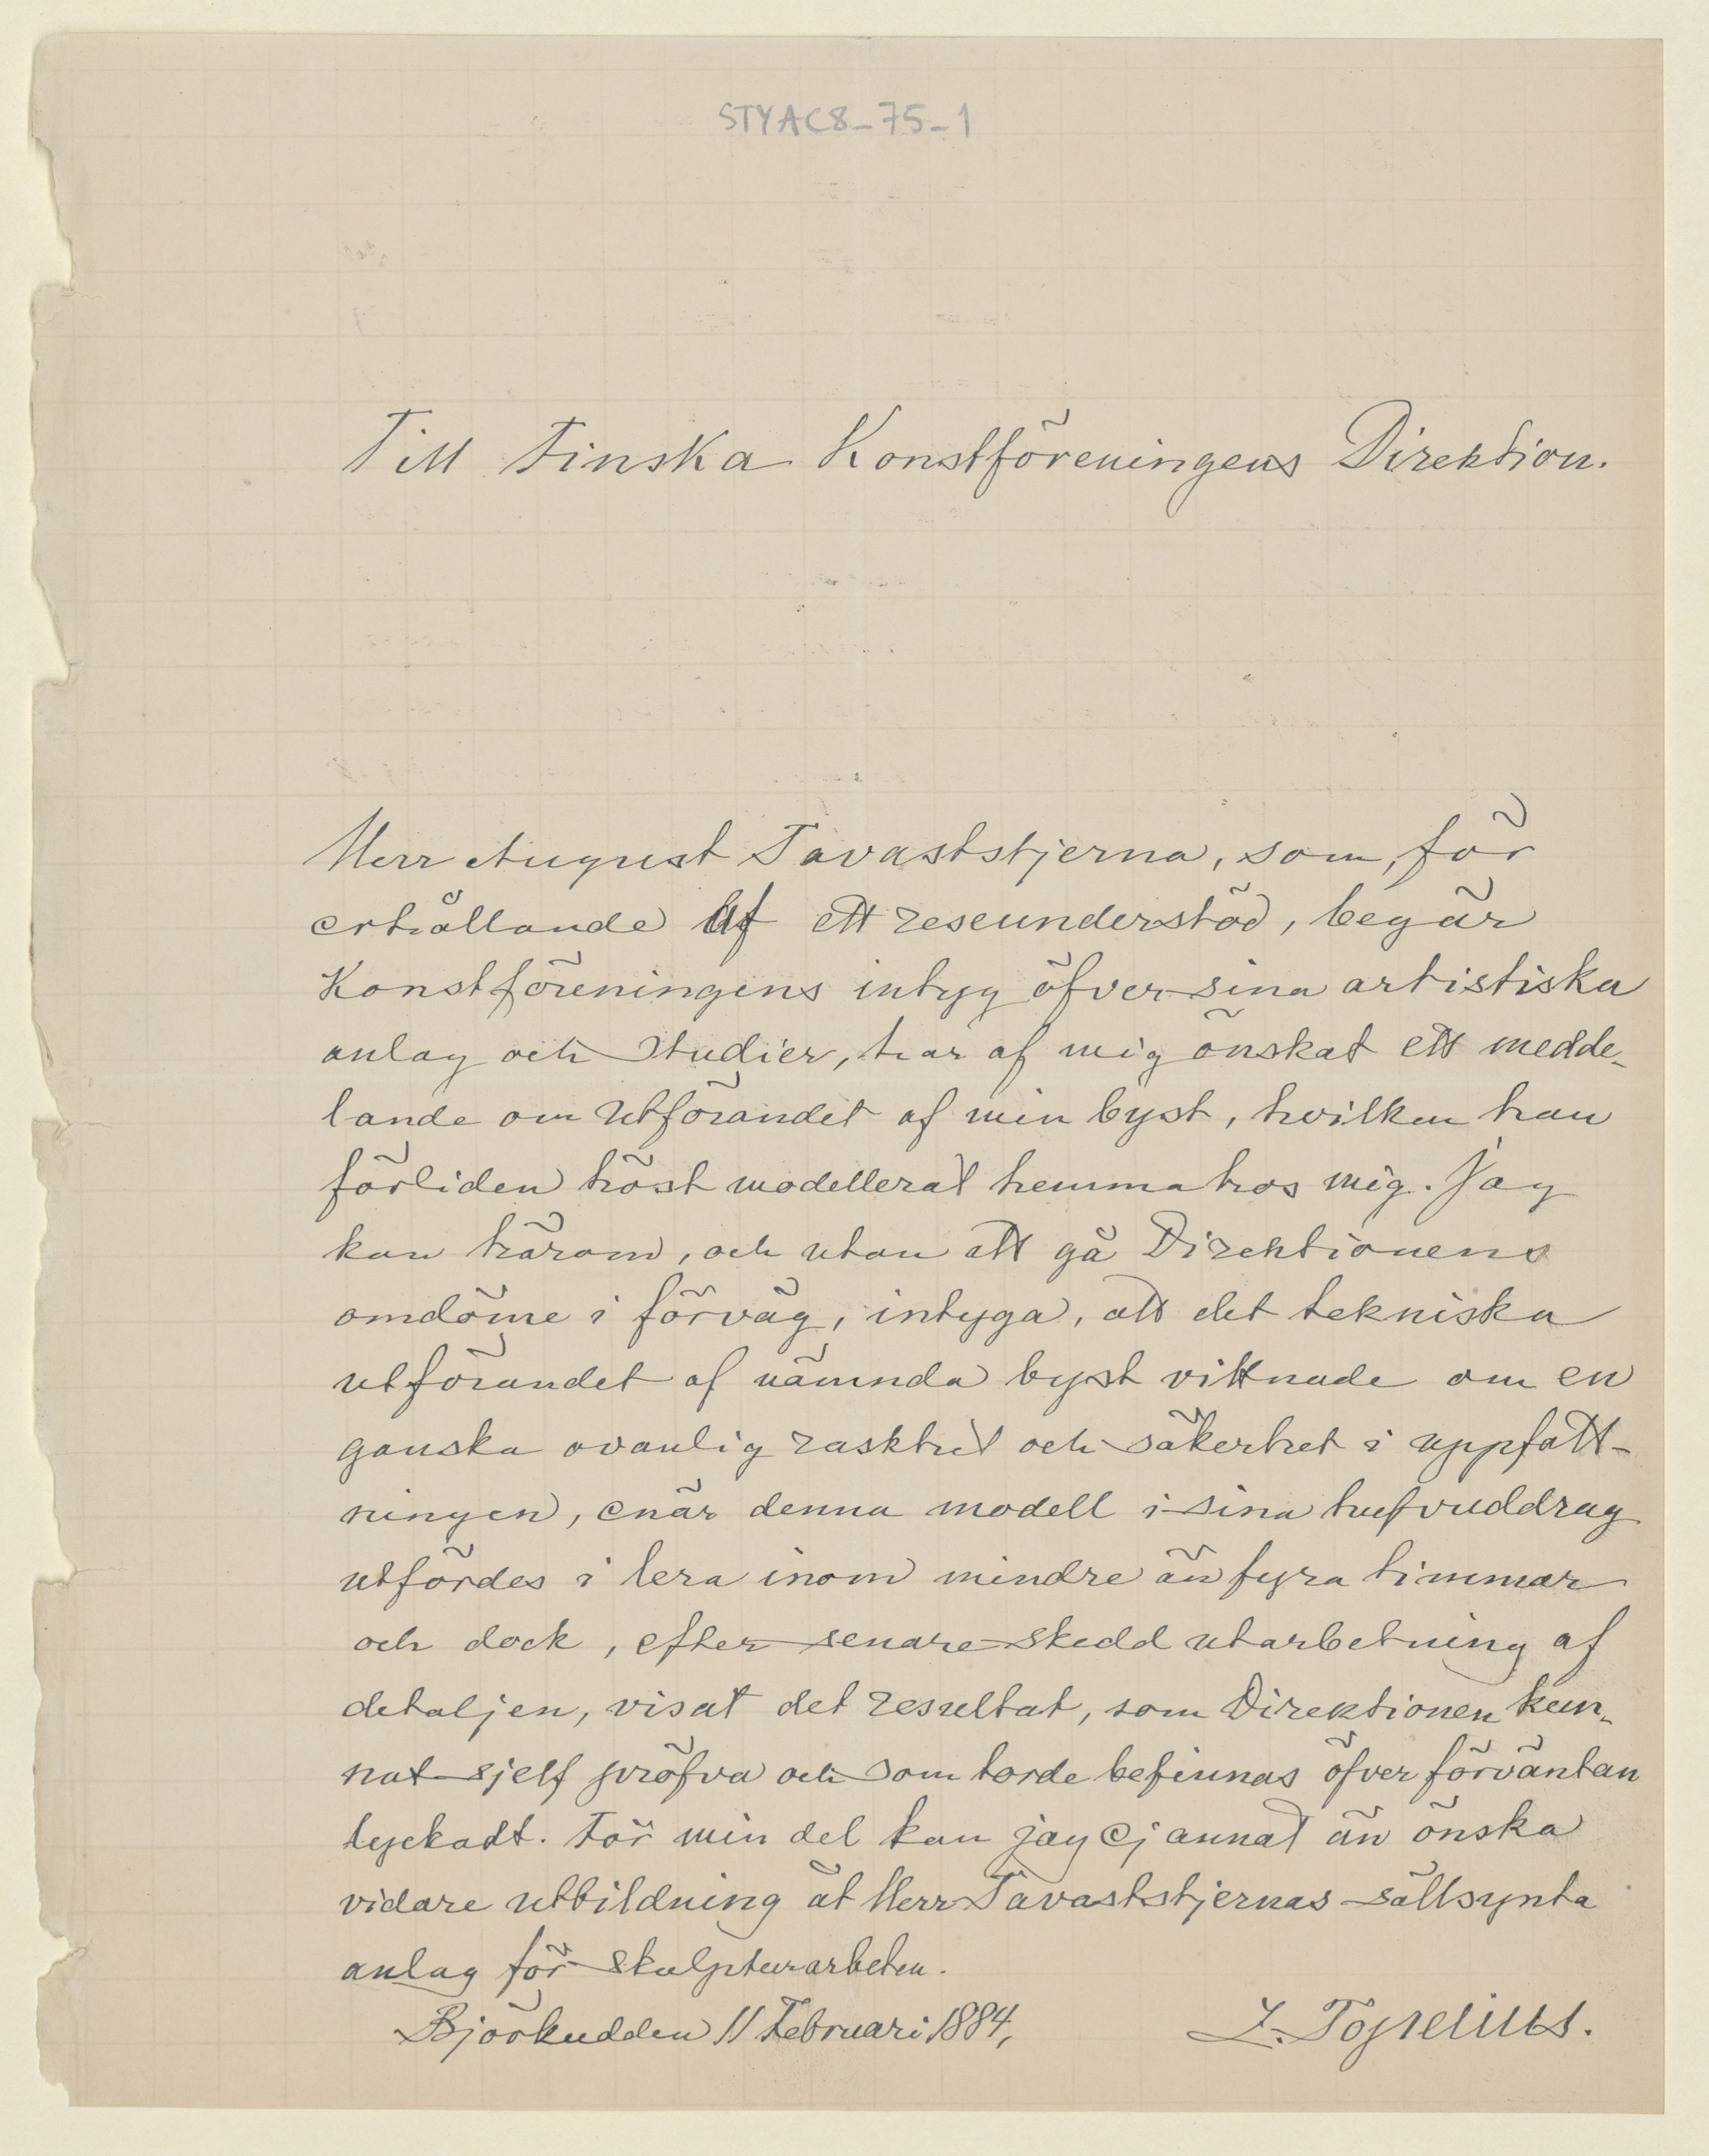 STYAC8-75-1
Till Finska Konstföreningens Direktion.
Herr August Tavaststjerna, som, för
erhållande af ett reseunderstöd, begär
Konstföreningens intyg öfver sina artistiska
anlag och studier, har af mig önskat ett medde-
lande om utförandet af min byst, hvilken han
förliden höst modellerat hemma hos mig. Jag
kan härom, och utan att gå Direktionens
omdöme i förväg, intyga, att det tekniska
utförandet af nämnda byst vittnade om en
ganska ovanlig raskhet och säkerhet i uppfatt-
ningen, enär denna modell i sina hufvuddrag
utfördes i lera inom mindre än fyra timmar
och dock, efter senare skedd utarbetning af
detaljen, visat det resultat, som Direktionen kun-
nat sjelf pröfva och som torde befinnas öfver förväntan
lyckadt. För min del kan jag ej annat än önska
vidare utbildning åt Herr Tavaststjernas sällsynta
anlag för skulpturarbeten.
Björkudden 11 Februari 1884,
Z. Topelius.